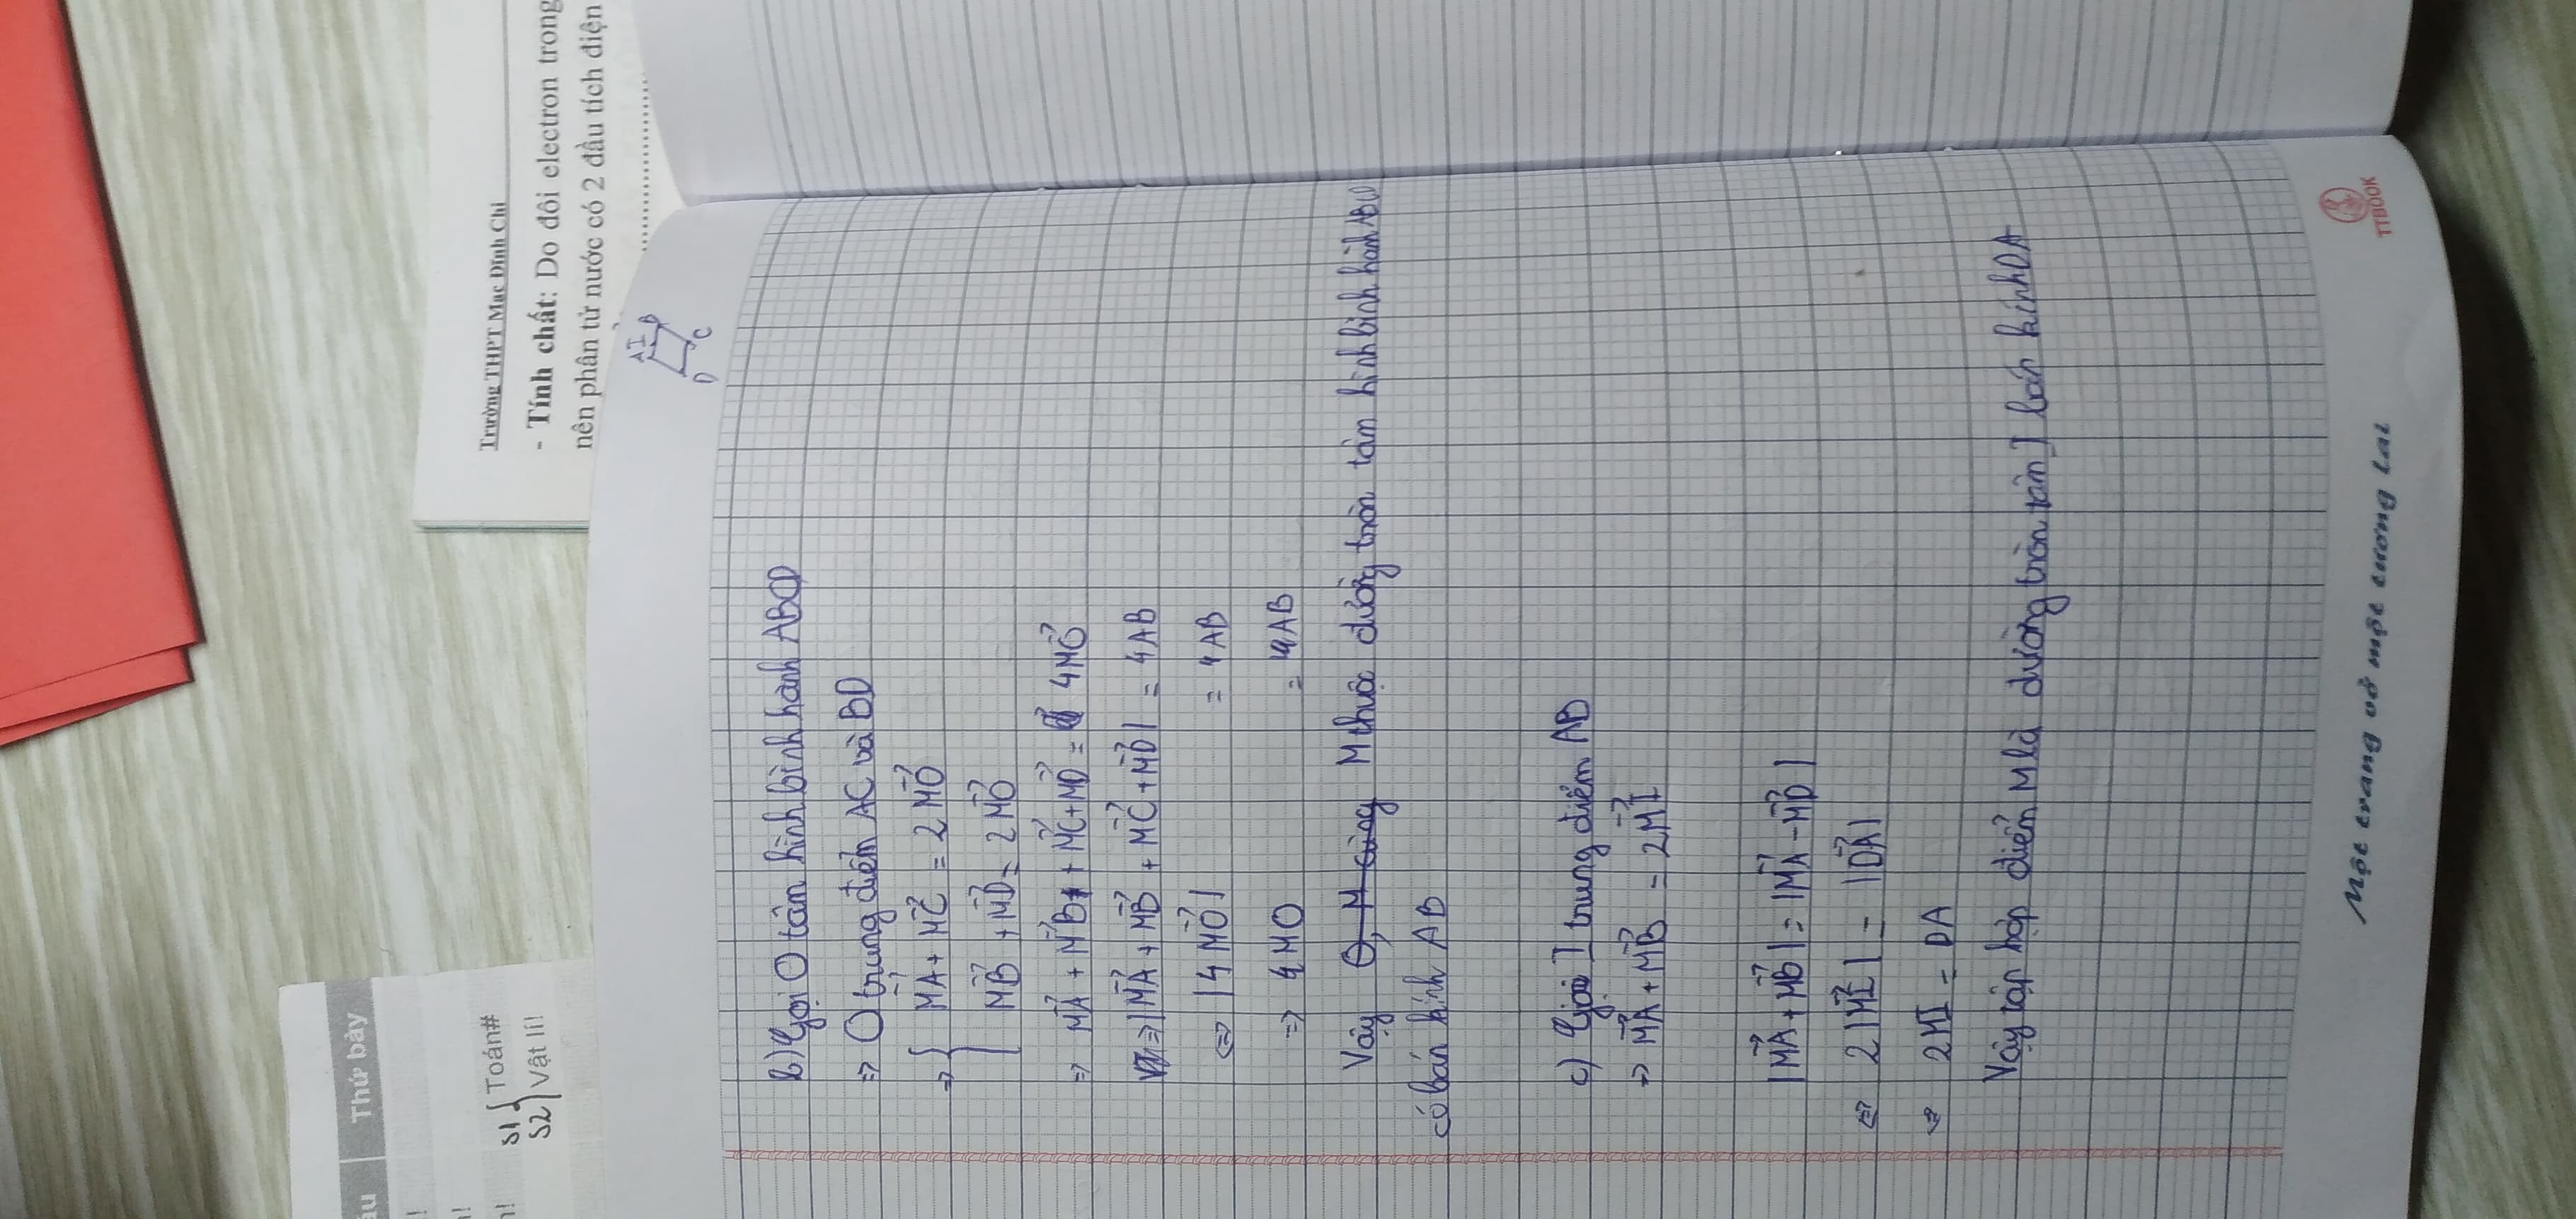 Trường THPT Mạc Đĩnh Chi
- Tính chất: Do đôi electron trong
nên phân tử nước có 2 đầu tích điện
Thứ bảy
S1 { Toán#
S2 } Vật lí!
A I B
D C
b) Gọi O tâm hình bình hành ABCD
=> O trung điểm AC và BD
=> { MA→ + MC→ = 2MO→
MB→ + MD→ = 2MO→
=> MA→ + MB→ + MC→ + MD→ = 4MO→
=> |MA→ + MB→ + MC→ + MD→| = 4AB
<=> |4MO→| = 4AB
=> 4MO = 4AB
Vậy M thuộc đường tròn tâm hình bình hành ABCD
có bán kính AB
c) Gọi I trung điểm AB
=> MA→ + MB→ = 2MI→
|MA→ + MB→| = |MA→ - MD→|
<=> 2|MI→| = |DA→|
=> 2MI = DA
Vậy tập hợp điểm M là đường tròn tâm I bán kính DA
Một trang vở một tương lai
TTBOOK